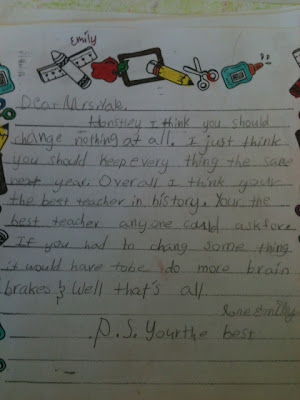 Emily
Dear Mrs. Wale,
Honstley I think you should
change nothing at all. I just think
you should keep every thing the same
next year. Overall I think your
the best teacher in history. Your the
best teacher any one could ask fore
If you had to chang some thing
it would have tobe do more brain
brakes & Well that's all
Emily
P.S. Your the best